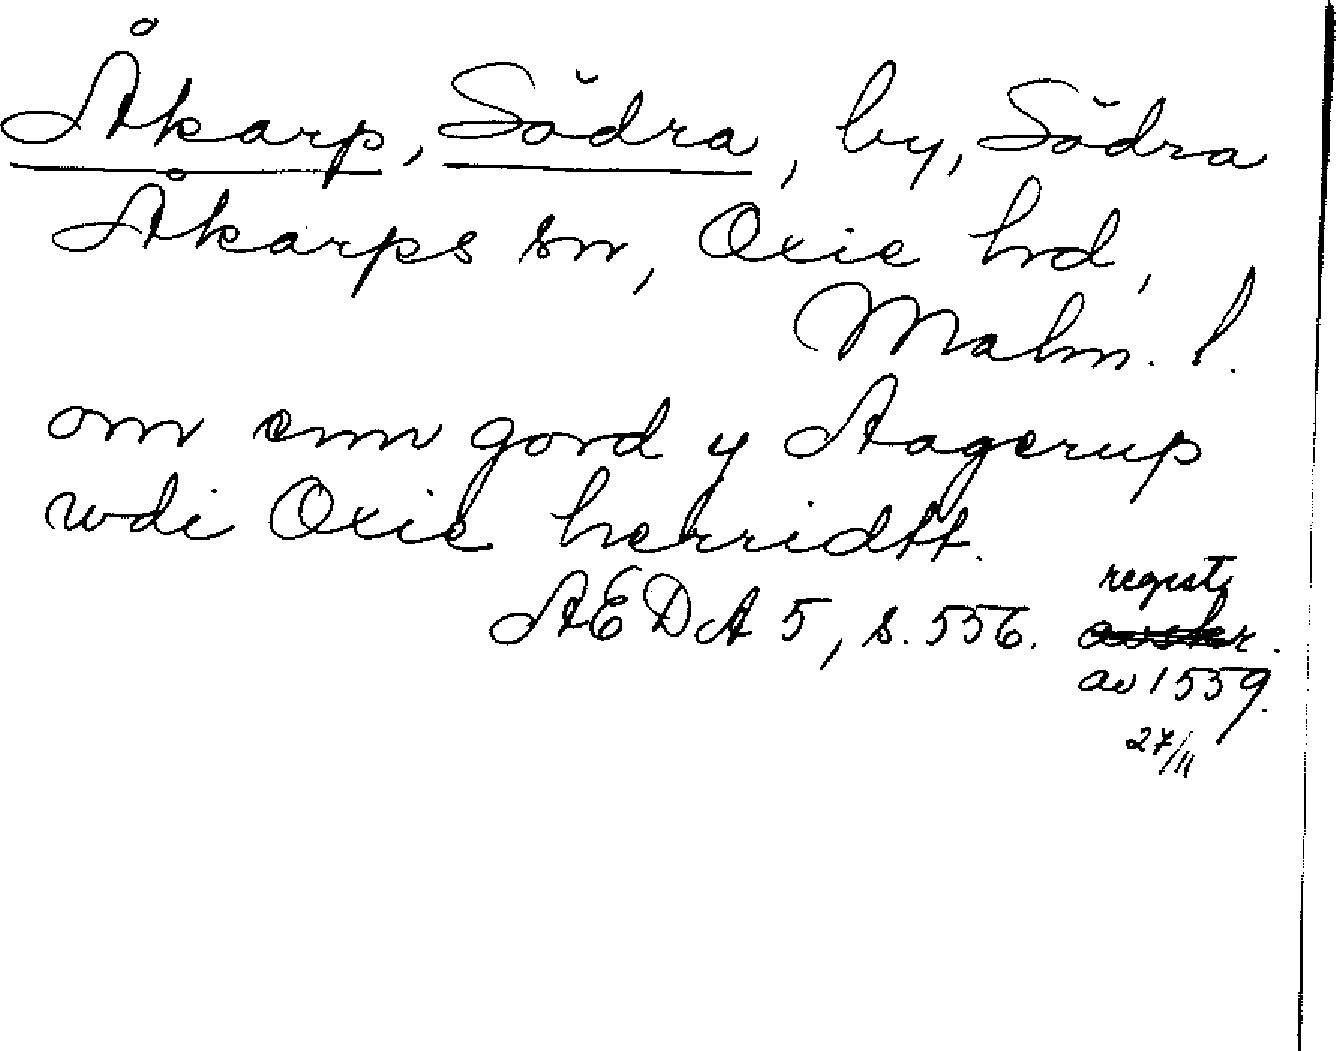 Åkarp, Södra, by, Södra
Åkarps sn, Oxie hd,
Malm. l.
om enn gord y Aagerup
wdi Oxie herridtt.
AEDA 5, s. 556. regist
avskr.
av 1559.
27/11